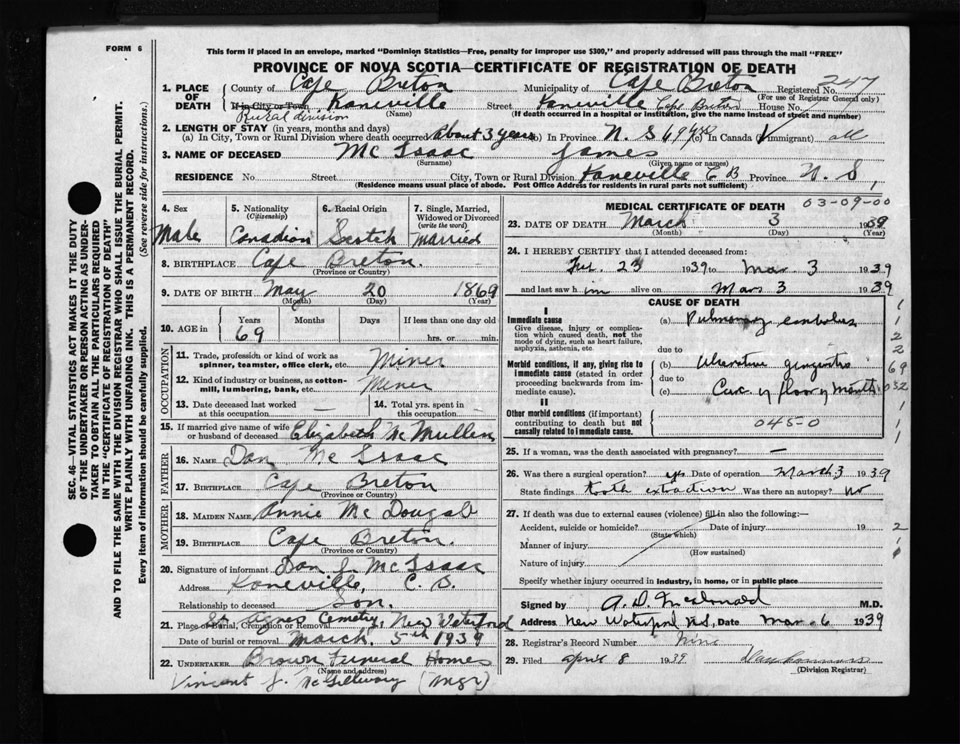 FORM 6
This form if placed in an envelope, marked "Dominion Statistics—Free, penalty for improper use $300," and properly addressed will pass through the mail "FREE"
PROVINCE OF NOVA SCOTIA—CERTIFICATE OF REGISTRATION OF DEATH
SEC. 46—VITAL STATISTICS ACT MAKES IT THE DUTY
OF THE UNDERTAKER OR PERSON ACTING AS UNDER-
TAKER TO OBTAIN ALL THE PARTICULARS REQUIRED
IN THE "CERTIFICATE OF REGISTRATION OF DEATH"
AND TO FILE THE SAME WITH THE DIVISION REGISTRAR WHO SHALL ISSUE THE BURIAL PERMIT.
WRITE PLAINLY WITH UNFADING INK. THIS IS A PERMANENT RECORD.
Every item of information should be carefully supplied. (See reverse side for instructions.)
1. PLACE OF DEATH County of Cape Breton Municipality of Cape Breton Registered No. 247
(For use of Registrar General only)
If in City or Town Kaneville Street Kaneville Cape Breton House No.
Rural division (Name) (If death occurred in a hospital or institution, give the name instead of street and number)
2. LENGTH OF STAY (in years, months and days)
(a) In City, Town or Rural Division where death occurred About 3 years (b) In Province N. S 69 yrs (c) In Canada (if immigrant) all
3. NAME OF DECEASED Mc Isaac James
(Surname) (Given name or names)
RESIDENCE No Street City, Town or Rural Division Kaneville C B Province N. S,
(Residence means usual place of abode. Post Office Address for residents in rural parts not sufficient)
4. Sex Male
5. Nationality (Citizenship) Canadian
6. Racial Origin Scotch
7. Single, Married, Widowed or Divorced (write the word) Married
8. BIRTHPLACE Cape Breton.
(Province or Country)
9. DATE OF BIRTH May 20 1869
(Month) (Day) (Year)
10. AGE in Years 69 Months Days If less than one day old hrs. or min.
OCCUPATION
11. Trade, profession or kind of work as spinner, teamster, office clerk, etc. Miner
12. Kind of industry or business, as cotton-mill, lumbering, bank, etc. Miner
13. Date deceased last worked at this occupation —
14. Total yrs. spent in this occupation
15. If married give name of wife or husband of deceased Elizabeth McMullen
FATHER
16. NAME Dan Mc Isaac
17. BIRTHPLACE Cape Breton
(Province or Country)
MOTHER
18. MAIDEN NAME Annie McDougall
19. BIRTHPLACE Cape Breton.
(Province or Country)
20. Signature of informant Dan J. McIsaac
Address Koneville, C. B.
Relationship to deceased Son.
21. Place of Burial, Cremation or Removal St. Agnes Cemetry, New Waterford
Date of burial or removal March. 5th 1939
22. UNDERTAKER Brown Funeral Homes
(Name and address)
Vincent J. McGillivary (Mgr)
MEDICAL CERTIFICATE OF DEATH 03-09-00
23. DATE OF DEATH March 3 1939
(Month) (Day) (Year)
24. I HEREBY CERTIFY that I attended deceased from:
Feb. 23 1939 to Mar 3 1939
and last saw him alive on Mar 3 1939
CAUSE OF DEATH
I
Immediate cause (a) Pulmonary embolus
Give disease, injury or complication which caused death, not the mode of dying, such as heart failure, asphyxia, asthenia, etc. due to
Morbid conditions, if any, giving rise to immediate cause (stated in order proceeding backwards from immediate cause). (b) Ulcerative gingivitis
due to
(c) Carc. of floor of mouth
II
Other morbid conditions (if important) contributing to death but not causally related to immediate cause. 045-0
1
1
2
2
69
032
1
1
1
25. If a woman, was the death associated with pregnancy? —
26. Was there a surgical operation? yes Date of operation March 3 1939
State findings tooth extraction Was there an autopsy? No
27. If death was due to external causes (violence) fill in also the following:—
Accident, suicide or homicide? Date of injury 19
(State which)
Manner of injury
(How sustained)
Nature of injury
Specify whether injury occurred in industry, in home, or in public place
Signed by A. D. McDonald M.D.
Address New Waterford N.S, Date Mar 6 1939
28. Registrar's Record Number Nine
29. Filed April 8 1939
(Division Registrar)